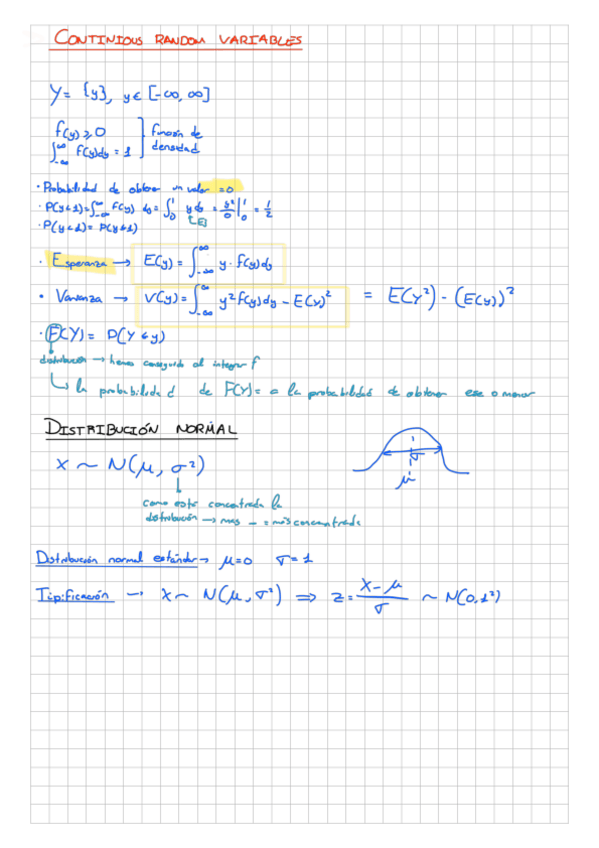 CONTINIOUS RANDOM VARIABLES
Y = {y}, y ∈ [-∞, ∞]
f(y) ≥ 0
∫_{-∞}^{∞} f(y)dy = 1
función de densidad
· Probabilidad de obtener un valor = 0
· P(y<1) = ∫_{-∞}^{∞} f(y) dy = ∫_0^1 y dy = y²/0 |_0^1 = 1/2
· P(y<1) = P(y≤1)
· Esperanza → E(y) = ∫_{-∞}^{∞} y · f(y)dy
• Varianza → V(y) = ∫_{-∞}^{∞} y² f(y)dy - E(y)² = E(Y²) - (E(y))²
· F(Y) = P(Y ≤ y)
distribución → hemos conseguido al integrar f
↳ la probabilidad de F(Y) = a la probabilidad de obtener ese o menor
DISTRIBUCIÓN NORMAL
X ~ N(μ, σ²)
σ
μ
como está concentrada la
distribución → mas - = más concentrada
Distribución normal estándar → μ=0 σ=1
Tipificación → X ~ N(μ, σ²) ⇒ z = (X-μ)/σ ~ N(0, 1²)